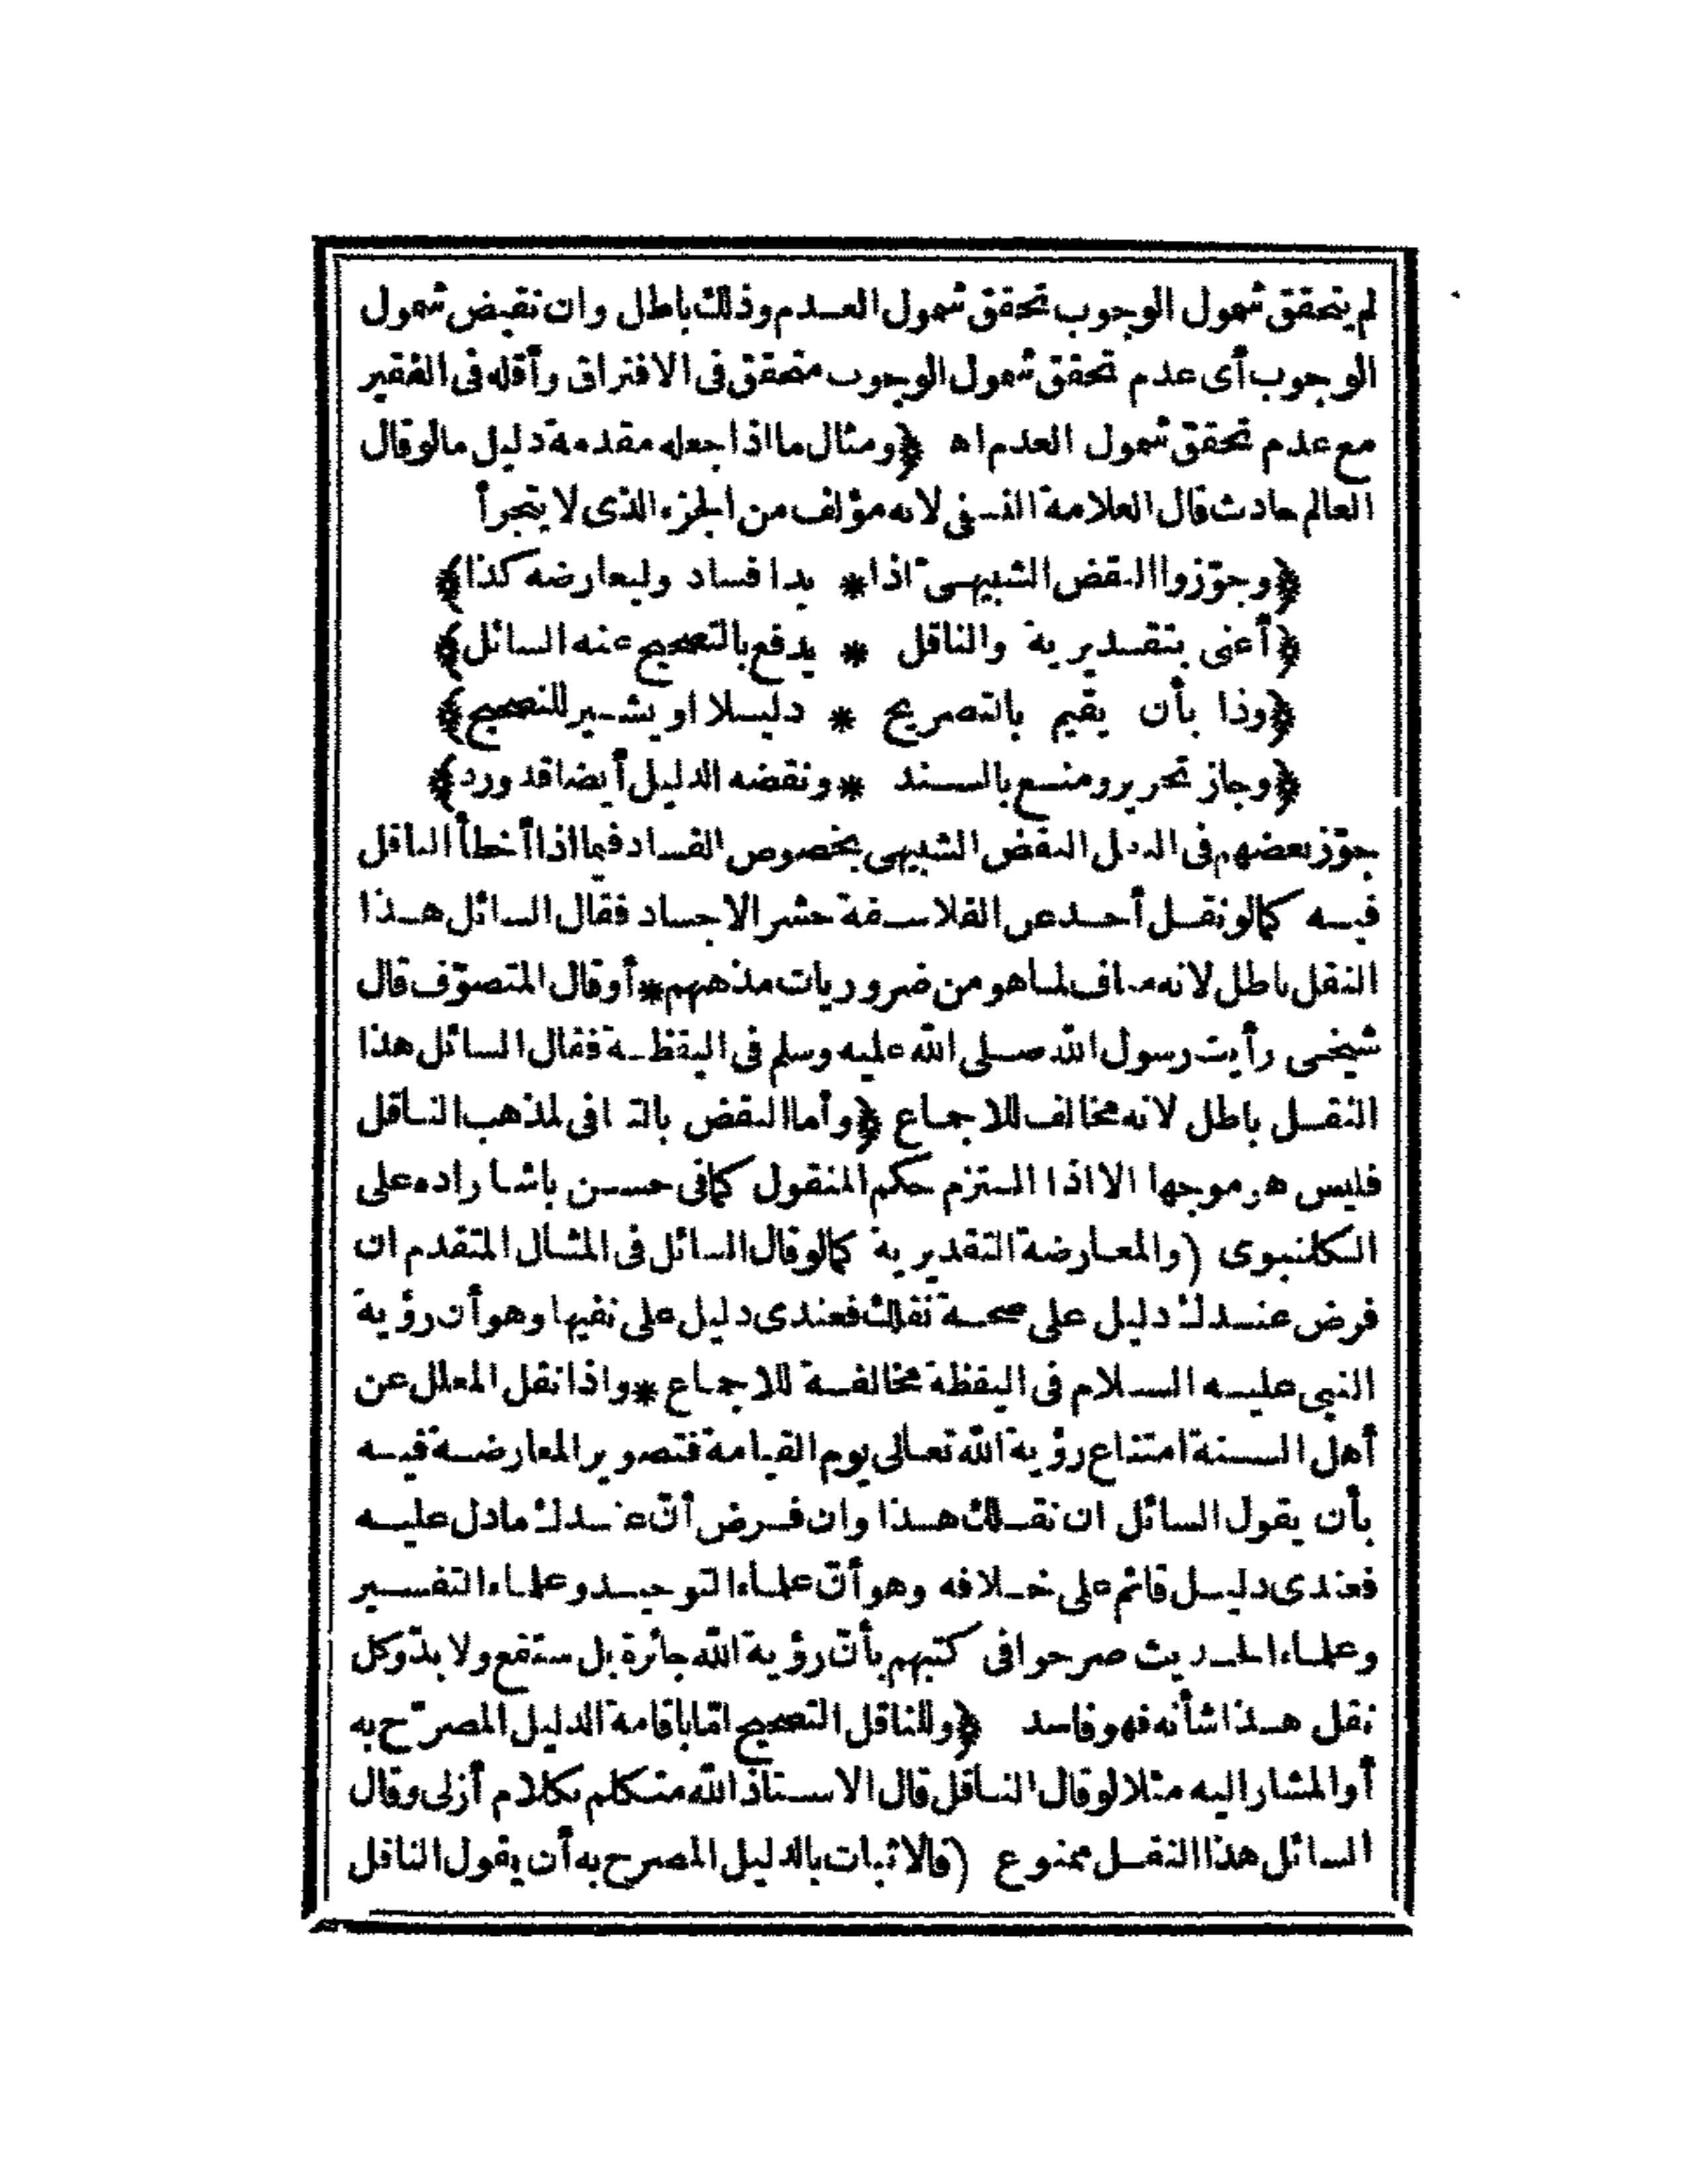 لم يتحقق شمول الوجوب تحقق شمول العدم وذلك باطل وان نقيض شمول
الوجوب أى عدم تحقق شمول الوجوب متحقق فى الافتراق وأقله فى الفقير
مع عدم تحقق شمول العدم اه ﴿ومثال ما اذا جعله مقدمة دليل ما لو قال
العالم حادث قال العلامة النسفى لانه مؤلف من الجزء الذى لا يتجرأ
﴿وجوّزوا النقض الشبيهىّ اذا * بدا فساد وليعارضه كذا﴾
﴿أعنى بتقديرية والناقل * يدفع بالتصحيح عنه السائل﴾
﴿وذا بأن يقيم بالتصريح * دليلا او يشير للتصحيح﴾
﴿وجاز تحرير ومنع بالسند * ونقضه الدليل أيضا قد ورد﴾
جوّز بعضهم فى النقل النقض الشبيهى بخصوص الفساد فيما اذا أخطأ الناقل
فيه كما لو نقل أحد عن الفلاسفة حشر الاجساد فقال السائل هذا
النقل باطل لانه مناف لما هو من ضروريات مذهبهم * أو قال المتصوّف قال
شيخى رأيت رسول الله صلى الله عليه وسلم فى اليقظة فقال السائل هذا
النقل باطل لانه مخالف للاجماع ﴿وأما النقض بالتنافى لمذهب الناقل
فليس هو موجها الا اذا التزم حكم المنقول كما فى حسن باشا زاده على
الكلنبوى (والمعارضة التقديرية كما لو قال السائل فى المثال المتقدم ان
فرض عندك دليل على صحة نقلك فعندى دليل على نفيها وهو أن رؤية
النبى عليه السلام فى اليقظة مخالفة للاجماع * واذا نقل المعلل عن
أهل السنة امتناع رؤية الله تعالى يوم القيامة فتصوير المعارضة فيه
بأن يقول السائل ان نقلك هذا وان فرض أنّ عندك ما دل عليه
فعندى دليل قائم على خلافه وهو أنّ علماء التوحيد وعلماء التفسير
وعلماء الحديث صرحوا فى كتبهم بأنّ رؤية الله جائزة بل ستقع ولا بدّ وكل
نقل هذا شأنه فهو فاسد ﴿وللناقل التصحيح امّا باقامة الدليل المصرّح به
أو المشار اليه مثلا لو قال الناقل قال الاستاذ الله متكلم بكلام أزلى وقال
السائل هذا النقل ممنوع (فالاثبات بالدليل المصرح به أن يقول الناقل